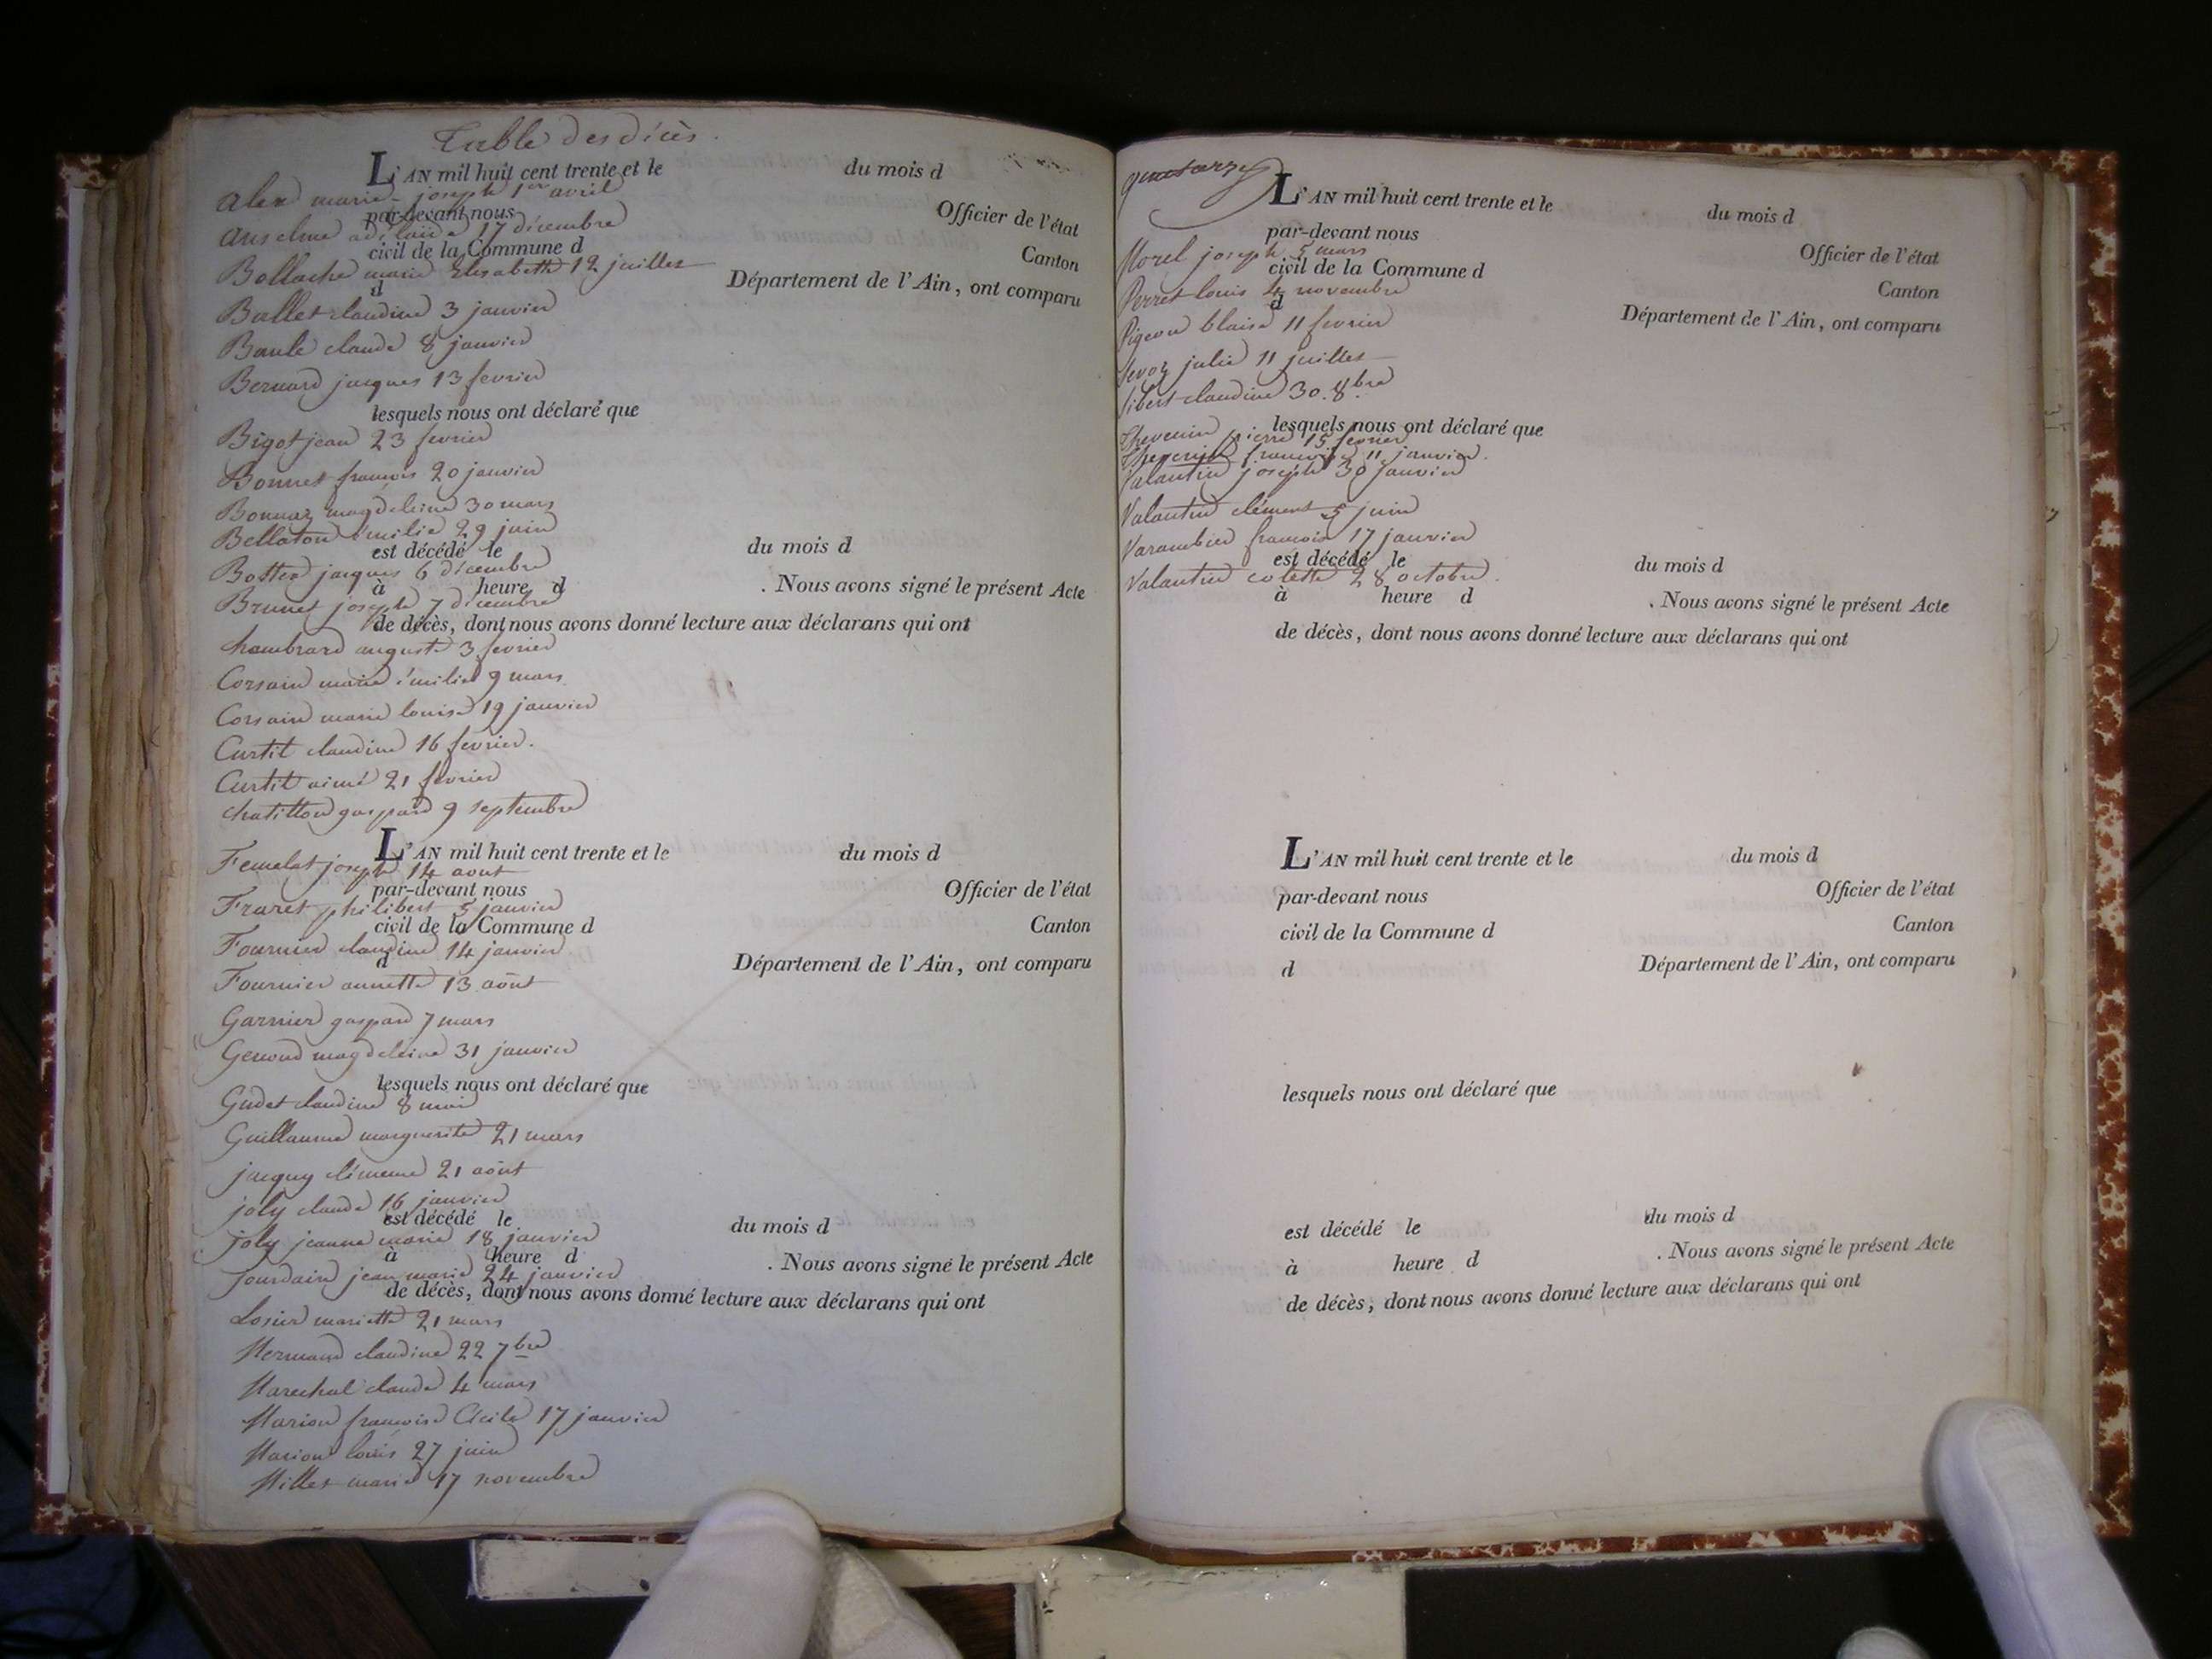 Table des décès.
L'AN mil huit cent trente et le du mois d
Alex marie-joseph 1er avril
par-devant nous Officier de l'état
Anselme adélaïde 17 décembre
civil de la Commune d Canton
Bollache marie Elisabeth 12 juillet
d Département de l'Ain, ont comparu
Ballet claudine 3 janvier
Baule claude 8 janvier
Bernard jacques 13 fevrier
lesquels nous ont déclaré que
Bigot jean 23 fevrier
Bonnet francois 20 janvier
Bonnaz magdeleine 30 mars
Bellaton émilie 29 juin
est décédé le du mois d
Bottex jacques 6 décembre
à heure d . Nous avons signé le présent Acte
Brunet joseph 7 décembre
de décès, dont nous avons donné lecture aux déclarans qui ont
chambrard auguste 3 fevrier
Corsain marie émilie 9 mars
Corsain marie louise 19 janvier
Curtil claudine 16 fevrier.
Curtil aimé 21 fevrier
chatillon gaspard 9 septembre
L'AN mil huit cent trente et le du mois d
Femelat joseph 14 aout
par-devant nous Officier de l'état
Fraret philibert 5 janvier
civil de la Commune d Canton
Fournier claudine 14 janvier
d Département de l'Ain, ont comparu
Fournier annette 13 août
Garnier gaspard 7 mars
Genoud magdeleine 31 janvier
lesquels nous ont déclaré que
Gudet claudine 8 mai
Guillaume marguerite 21 mars
jacquy 21 août
joly claude 16 janvier
est décédé le du mois d
joly jeanne marie 18 janvier
à heure d . Nous avons signé le présent Acte
jourdain jean marie 24 janvier
de décès, dont nous avons donné lecture aux déclarans qui ont
Losier mariette 21 mars
Mermand claudine 22 7bre
Marechal claude 4 mars
Marion francoise Cécile 17 janvier
Marion louis 27 juin
Millet marie 17 novembre
L'AN mil huit cent trente et le du mois d
par-devant nous Officier de l'état
Morel joseph 5 mars
civil de la Commune d Canton
Perret louis 4 novembre
d Département de l'Ain, ont comparu
Pigeon blaise 11 fevrier
Sevoz julie 11 juillet
Sibert claudine 30.8bre
lesquels nous ont déclaré que
Thevenin pierre 15 fevrier
Thevenin francoise 11 janvier.
Valantin joseph 30 janvier
Valantin clément 5 juin
Varambier francois 17 janvier
est décédé le du mois d
Valantin colette 28 octobre.
à heure d . Nous avons signé le présent Acte
de décès, dont nous avons donné lecture aux déclarans qui ont
L'AN mil huit cent trente et le du mois d
par-devant nous Officier de l'état
civil de la Commune d Canton
d Département de l'Ain, ont comparu
lesquels nous ont déclaré que
est décédé le du mois d
à heure d . Nous avons signé le présent Acte
de décès, dont nous avons donné lecture aux déclarans qui ont